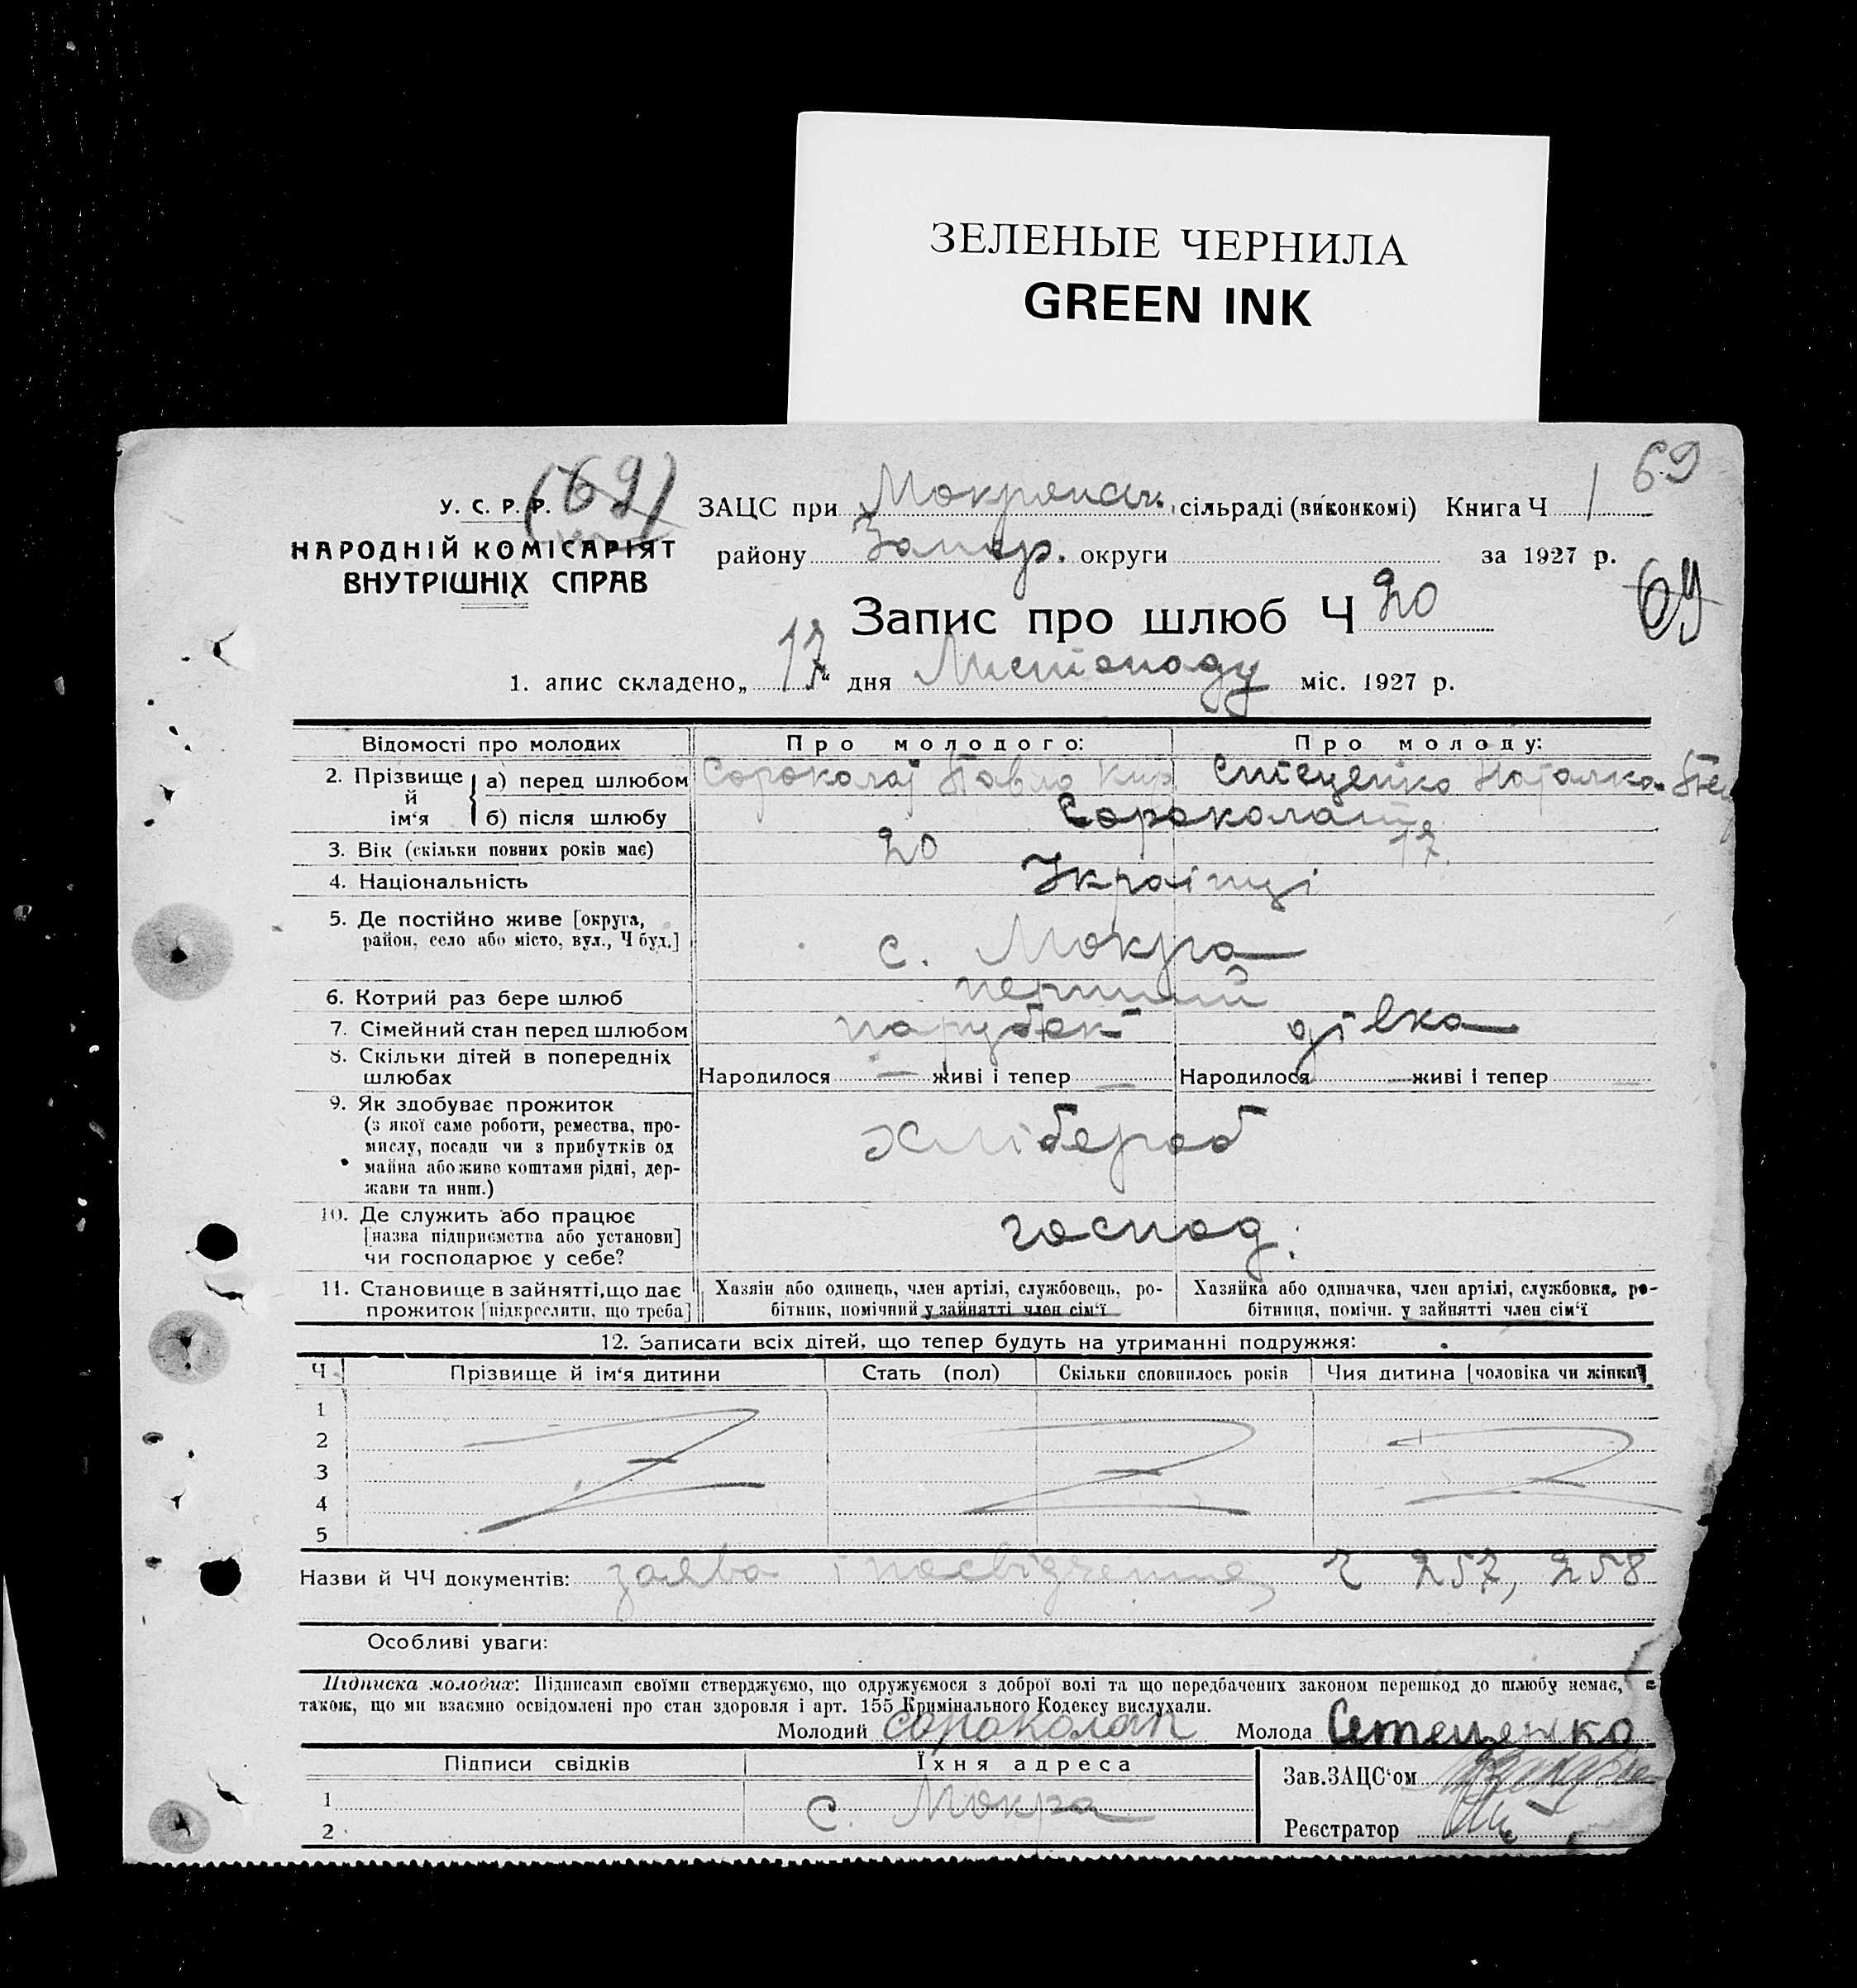 ЗЕЛЕНЫЕ ЧЕРНИЛА
GREEN INK
69
(69)
У. С. Р. Р.
НАРОДНІЙ КОМІСАРІЯТ
ВНУТРІШНІХ СПРАВ
ЗАЦС при Мокрянск. сільраді (виконкомі) Книга Ч 1
району Запор. округи за 1927 р.
69
Запис про шлюб Ч 20
1. апис складено „17“ дня Листопаду міс. 1927 р.
Відомості про молодих Про молодого: Про молоду:
2. Прізвище й ім‘я а) перед шлюбом Сороколат Павло Кир. Стеценко Наталка
б) після шлюбу Сороколат
3. Вік (скільки повних років має) 20 17.
4. Національність Українці
5. Де постійно живе [округа,
район, село або місто, вул., Ч буд.] с. Мокра
6. Котрий раз бере шлюб перший
7. Сімейний стан перед шлюбом парубок дівка
8. Скільки дітей в попередніх
шлюбах Народилося — живі і тепер — Народилося — живі і тепер —
9. Як здобуває прожиток
(з якої саме роботи, ремества, про-
мислу, посади чи з прибутків од
майна або живе коштами рідні, дер-
жави та инш.) хлібероб
10. Де служить або працює
[назва підприємства або установи]
чи господарює у себе? господ.
11. Становище в зайнятті, що дає
прожиток [підкреслити, що треба]
Хазяін або одинець, член артілі, службовець, ро-
бітник, помічний у зайнятті член сім‘ї
Хазяйка або одиначка, член артілі, службовка, ро-
бітниця, помічн. у зайнятті член сім‘ї
12. Записати всіх дітей, що тепер будуть на утриманні подружжя:
Ч Прізвище й ім‘я дитини Стать (пол) Скільки сповнилось років Чия дитина [чоловіка чи жінки]
1
2
3
4
5
Назви й ЧЧ документів: заява і посвідчення Ч 257, 258
Особливі уваги:
Підписка молодих: Підписами своїми стверджуємо, що одружуємося з доброї волі та що передбачених законом перешкод до шлюбу немає, а
також, що ми взаємно освідомлені про стан здоровля і арт. 155 Кримінального Кодексу вислухали.
Молодий Сороколат Молода Стеценко
Підписи свідків Їхня адреса
1 с. Мокра
2
Зав.ЗАЦС‘ом
Реєстратор